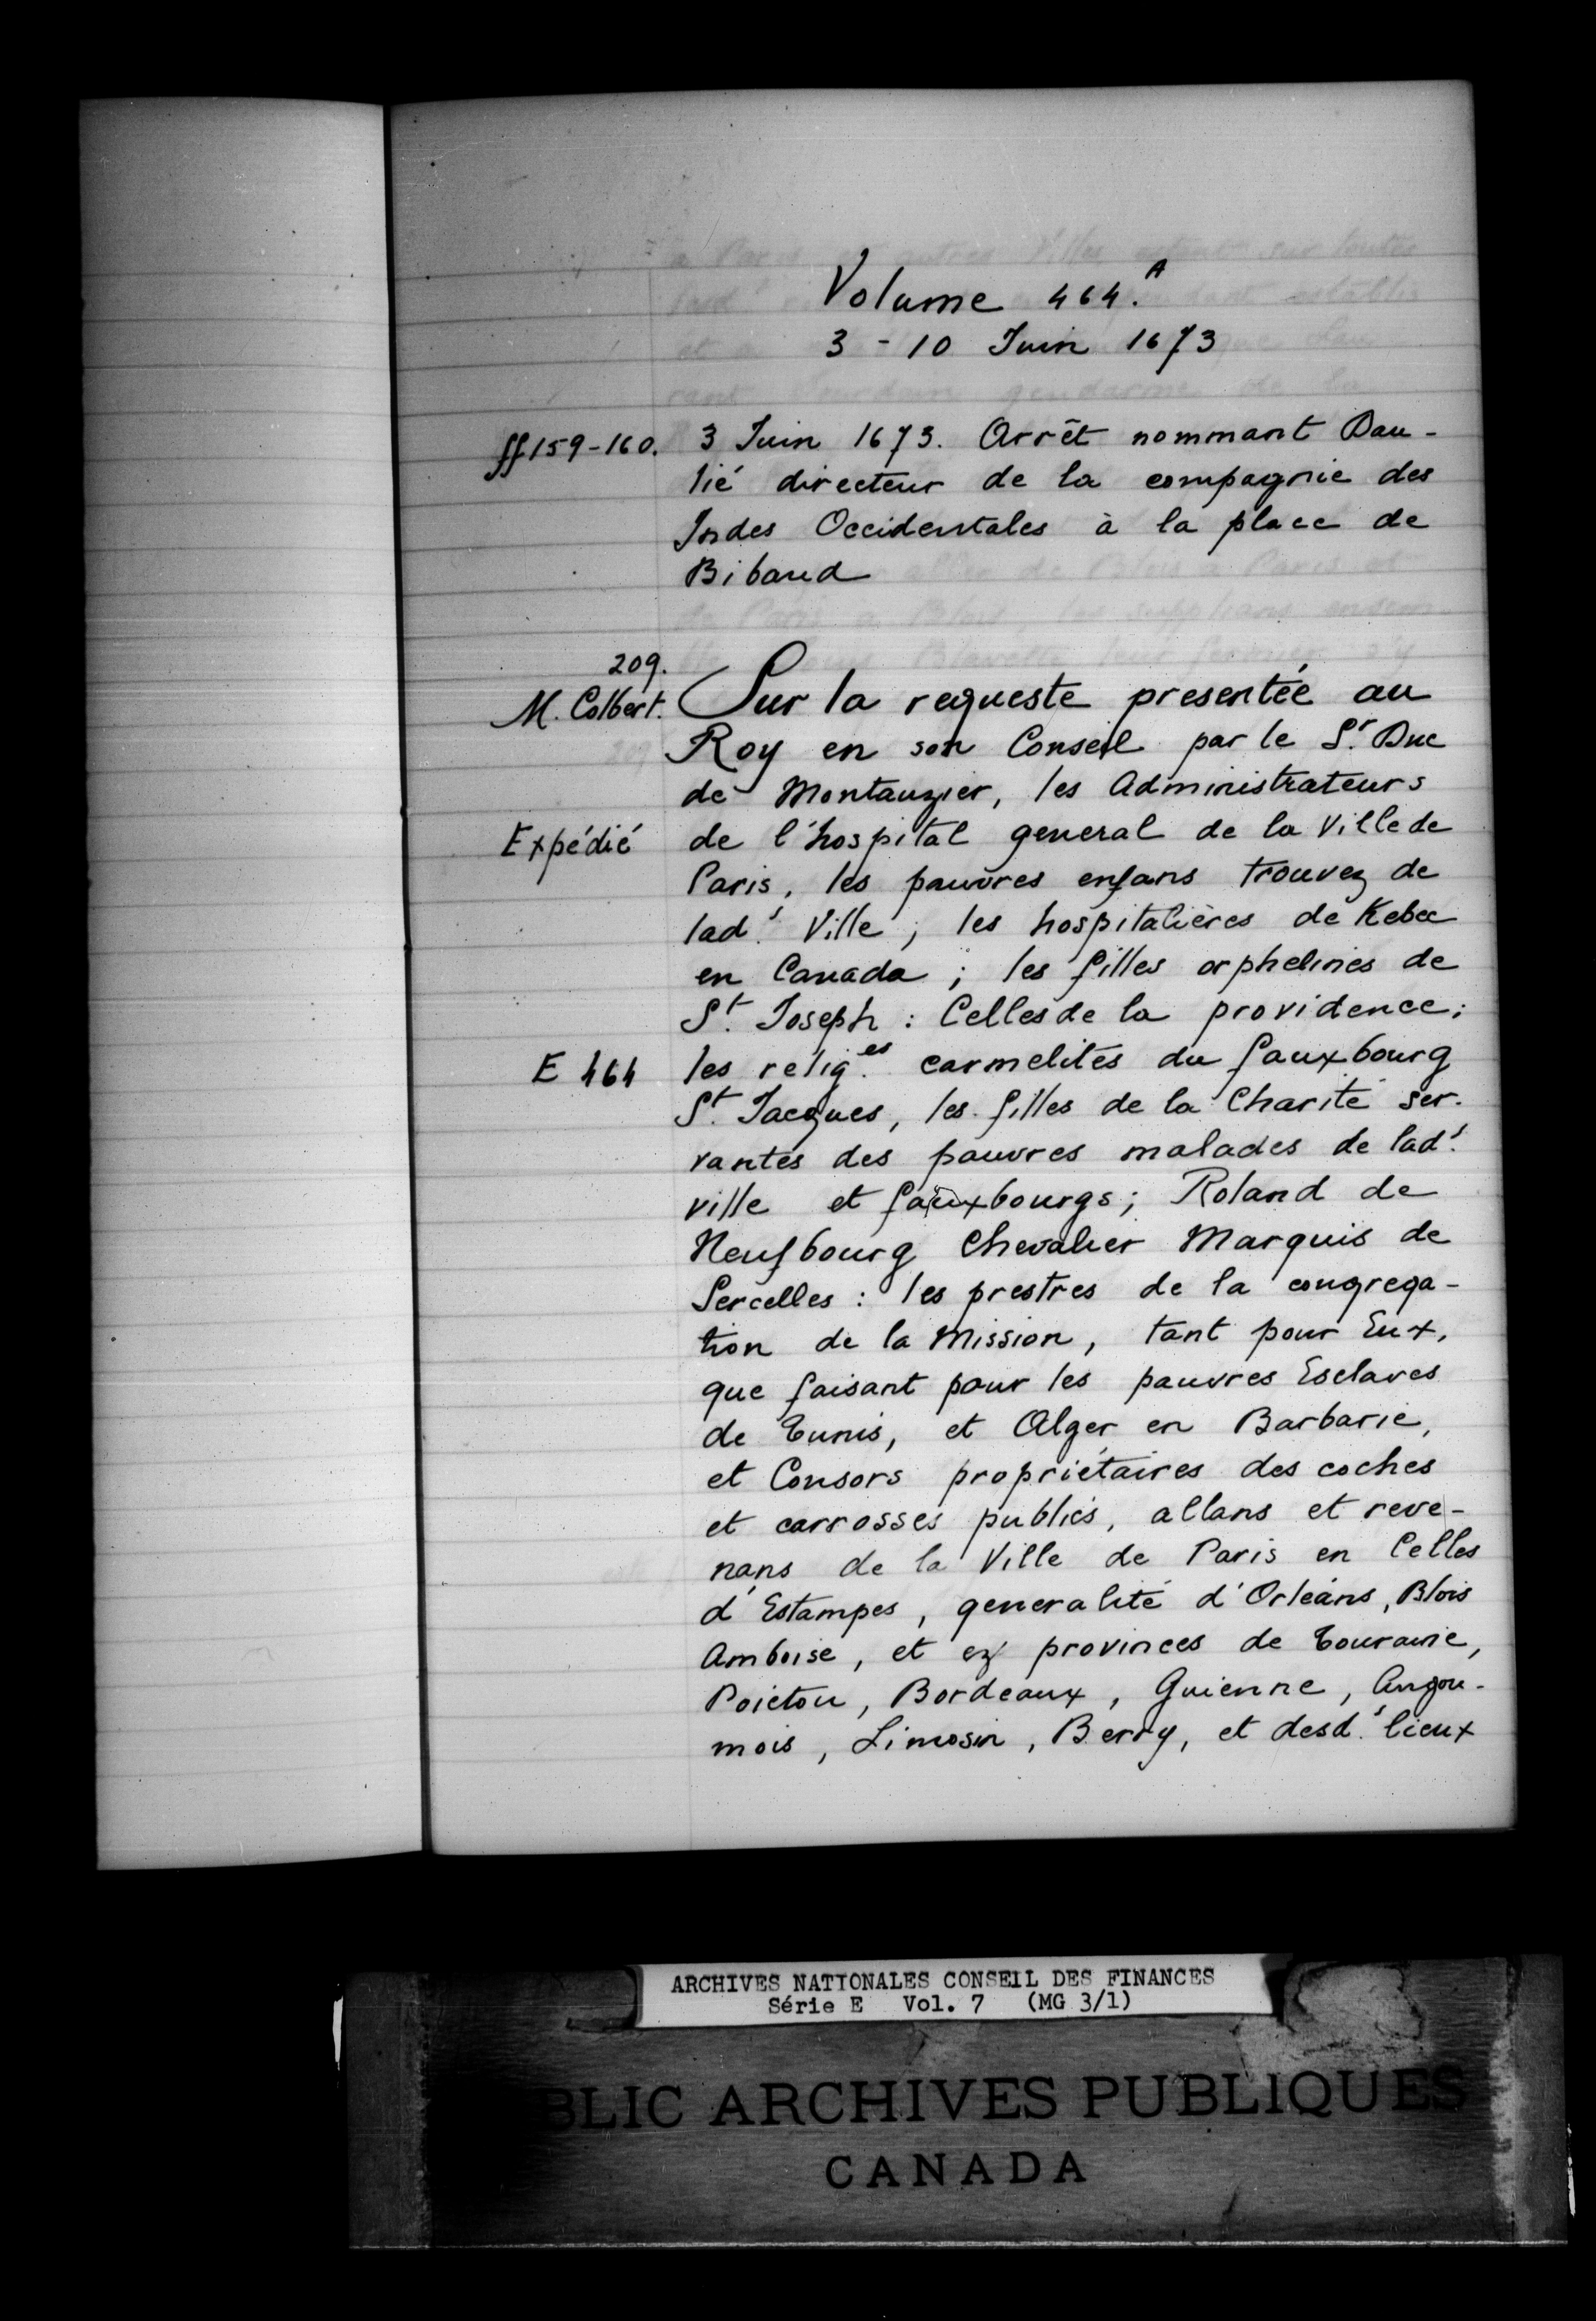 Volume 464.A
3 - 10 Juin 1673
ff 159-160. 3 Juin 1673. Arrêt nommant Dau-
lié directeur de la compagnie des
Indes Occidentales à la place de
Bibaud
209.
M. Colbert. Sur la requeste presentée au
Roy en son Conseil par le Sr. Duc
de Montauzier, les Administrateurs
Expédié de l'hospital general de la Ville de
Paris, les pauvres enfans trouvez de
lad.' Ville ; les hospitalières de Kebec
en Canada ; les filles orphelines de
St. Joseph : Celles de la providence ;
E 464 les relig.es carmelites du fauxbourg
St. Jacques, les filles de la Charité ser-
vantes des pauvres malades de lad.'
ville et fauxbourgs ; Roland de
Neufbourg Chevalier Marquis de
Sercelles : les prestres de la congrega-
tion de la Mission, tant pour Eux,
que faisant pour les pauvres Esclaves
de Tunis, et Alger en Barbarie,
et Consors propriétaires des coches
et carrosses publics, allans et reve-
nans de la Ville de Paris en Celles
d'Estampes, generalité d'Orleans, Blois
Amboise, et ez provinces de Touraine,
Poictou, Bordeaux, Guienne, Angou-
mois, Limosin, Berry, et desd.' lieux
ARCHIVES NATIONALES CONSEIL DES FINANCES
Série E Vol. 7 (MG 3/1)
BLIC ARCHIVES PUBLIQUES
CANADA